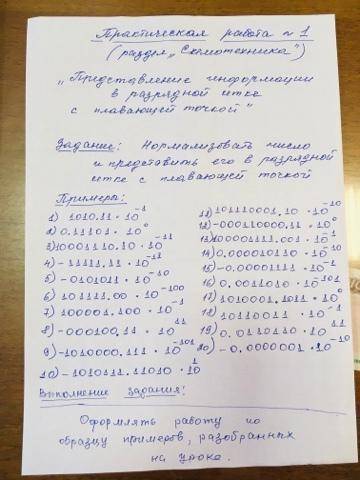 Практическая работа № 1
(раздел „Схемотехника")
„Представление информации
в разрядной сетке
с плавающей точкой"
Задание: Нормализовать число
и представить его в разрядной
сетке с плавающей точкой
Примеры:
1) 1010.11 · 10^-1
2) 0.11101 · 10^0
3) 10001110.10 · 10^-11
4) -11111.11 · 10^11
5) -0101011 · 10^-10
6) 101111.00 · 10^-100
7) 100001.100 · 10^-1
8) -000100.11 · 10^11
9) -1010000.111 · 10^-101
10) -1010111.11010 · 10^1
11) 101110001.10 · 10^-10
12) -000110000.11 · 10^0
13) 10001111.001 · 10^-1
14) 0.000010110 · 10^-10
15) -0.0000111 · 10^-1
16) 0.0011010 · 10^101
17) 1010001.1011 · 10^0
18) 10110011 · 10^-1
19) 0.0110110 · 10^11
20) -0.0000001 · 10^-10
Выполнение задания:
Оформлять работу по
образцу примеров, разобранных
на уроке.